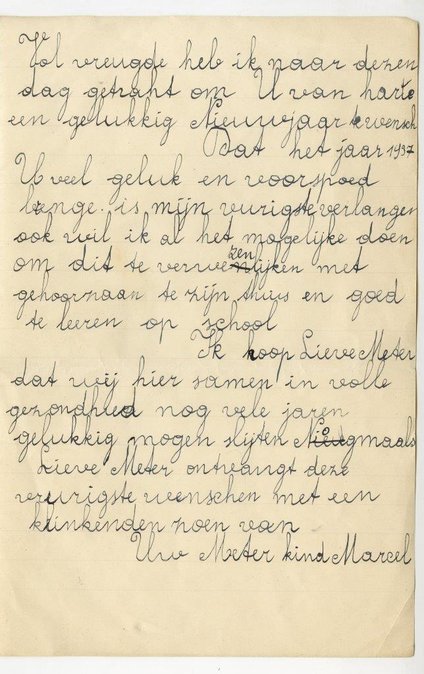 Vol vreugde heb ik naar dezen
dag getraht om U van harte
een gelukkig Nieuwjaar te wensch
Dat het jaar 1937
U veel geluk en voorspoed
brenge is mijn vurigste verlangen
ook wil ik al het mogelijke doen
om dit te verwezenlijken met
gehoorzaan te zijn thuis en goed
te leeren op school
Ik hoop Lieve Meter
dat wij hier samen in volle
gezondhied nog vele jaren
gelukkig mogen slijten Nogmaals
Lieve Meter ontvangt deze
vrurigste wenschen met een
klinkenden zoen van
Uw Meter kind Marcel